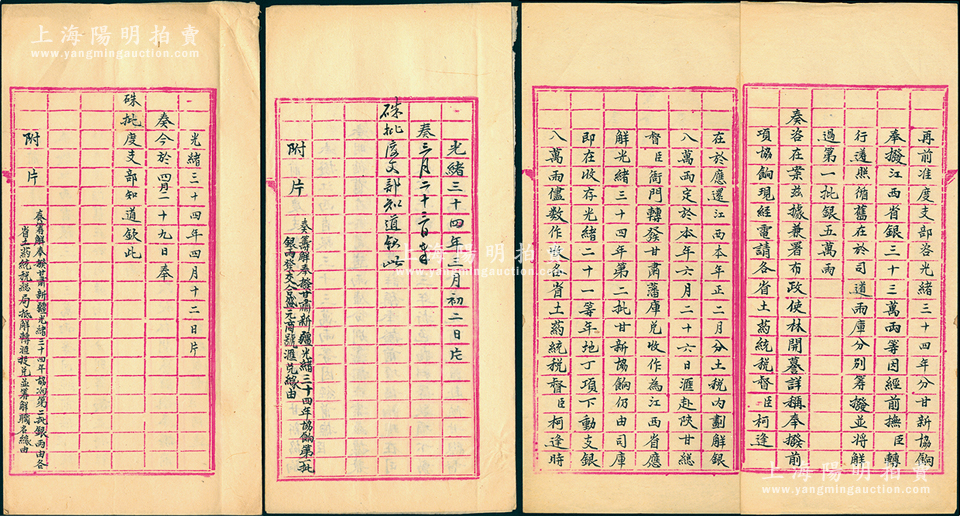 上海陽明拍賣
www.yangmingauction.com
再前准度支部咨光緒三十四年分甘新協餉
奉撥江西省銀三十三萬兩等因經前撫臣轉
行遵照循舊在於司道兩庫分別籌撥並將解
過第一批銀五萬兩
奏咨在案茲據兼署布政使林開謩詳稱奉撥前
項協餉現經電請各省土葯統稅督臣柯逢時
在於應還江西本年正二月分土稅內劃解銀
八萬兩定於本年六月二十六日滙赴陝甘總
督臣衙門轉發甘肅藩庫兌收作為江西省應
解光緒三十四年第二批甘新協餉仍由司庫
即在收存光緒二十一等年地丁項下動支銀
八萬兩儘數作收各省土葯統稅督臣柯逢時
光緒三十四年三月初二日片
奏三月二十三日奉
硃批度支部知道欽此
附片
奏籌解奉撥甘肅新疆光緒三十四年協餉第一批
銀兩發交合盛元商號滙兌緣由
光緒三十四年四月十二日片
奏今於四月二十九日奉
硃批度支部知道欽此
附片
奏籌解奉撥甘肅新疆光緒三十四年協餉第二批銀兩由各
上海陽明拍賣
www.yangmingauction.com